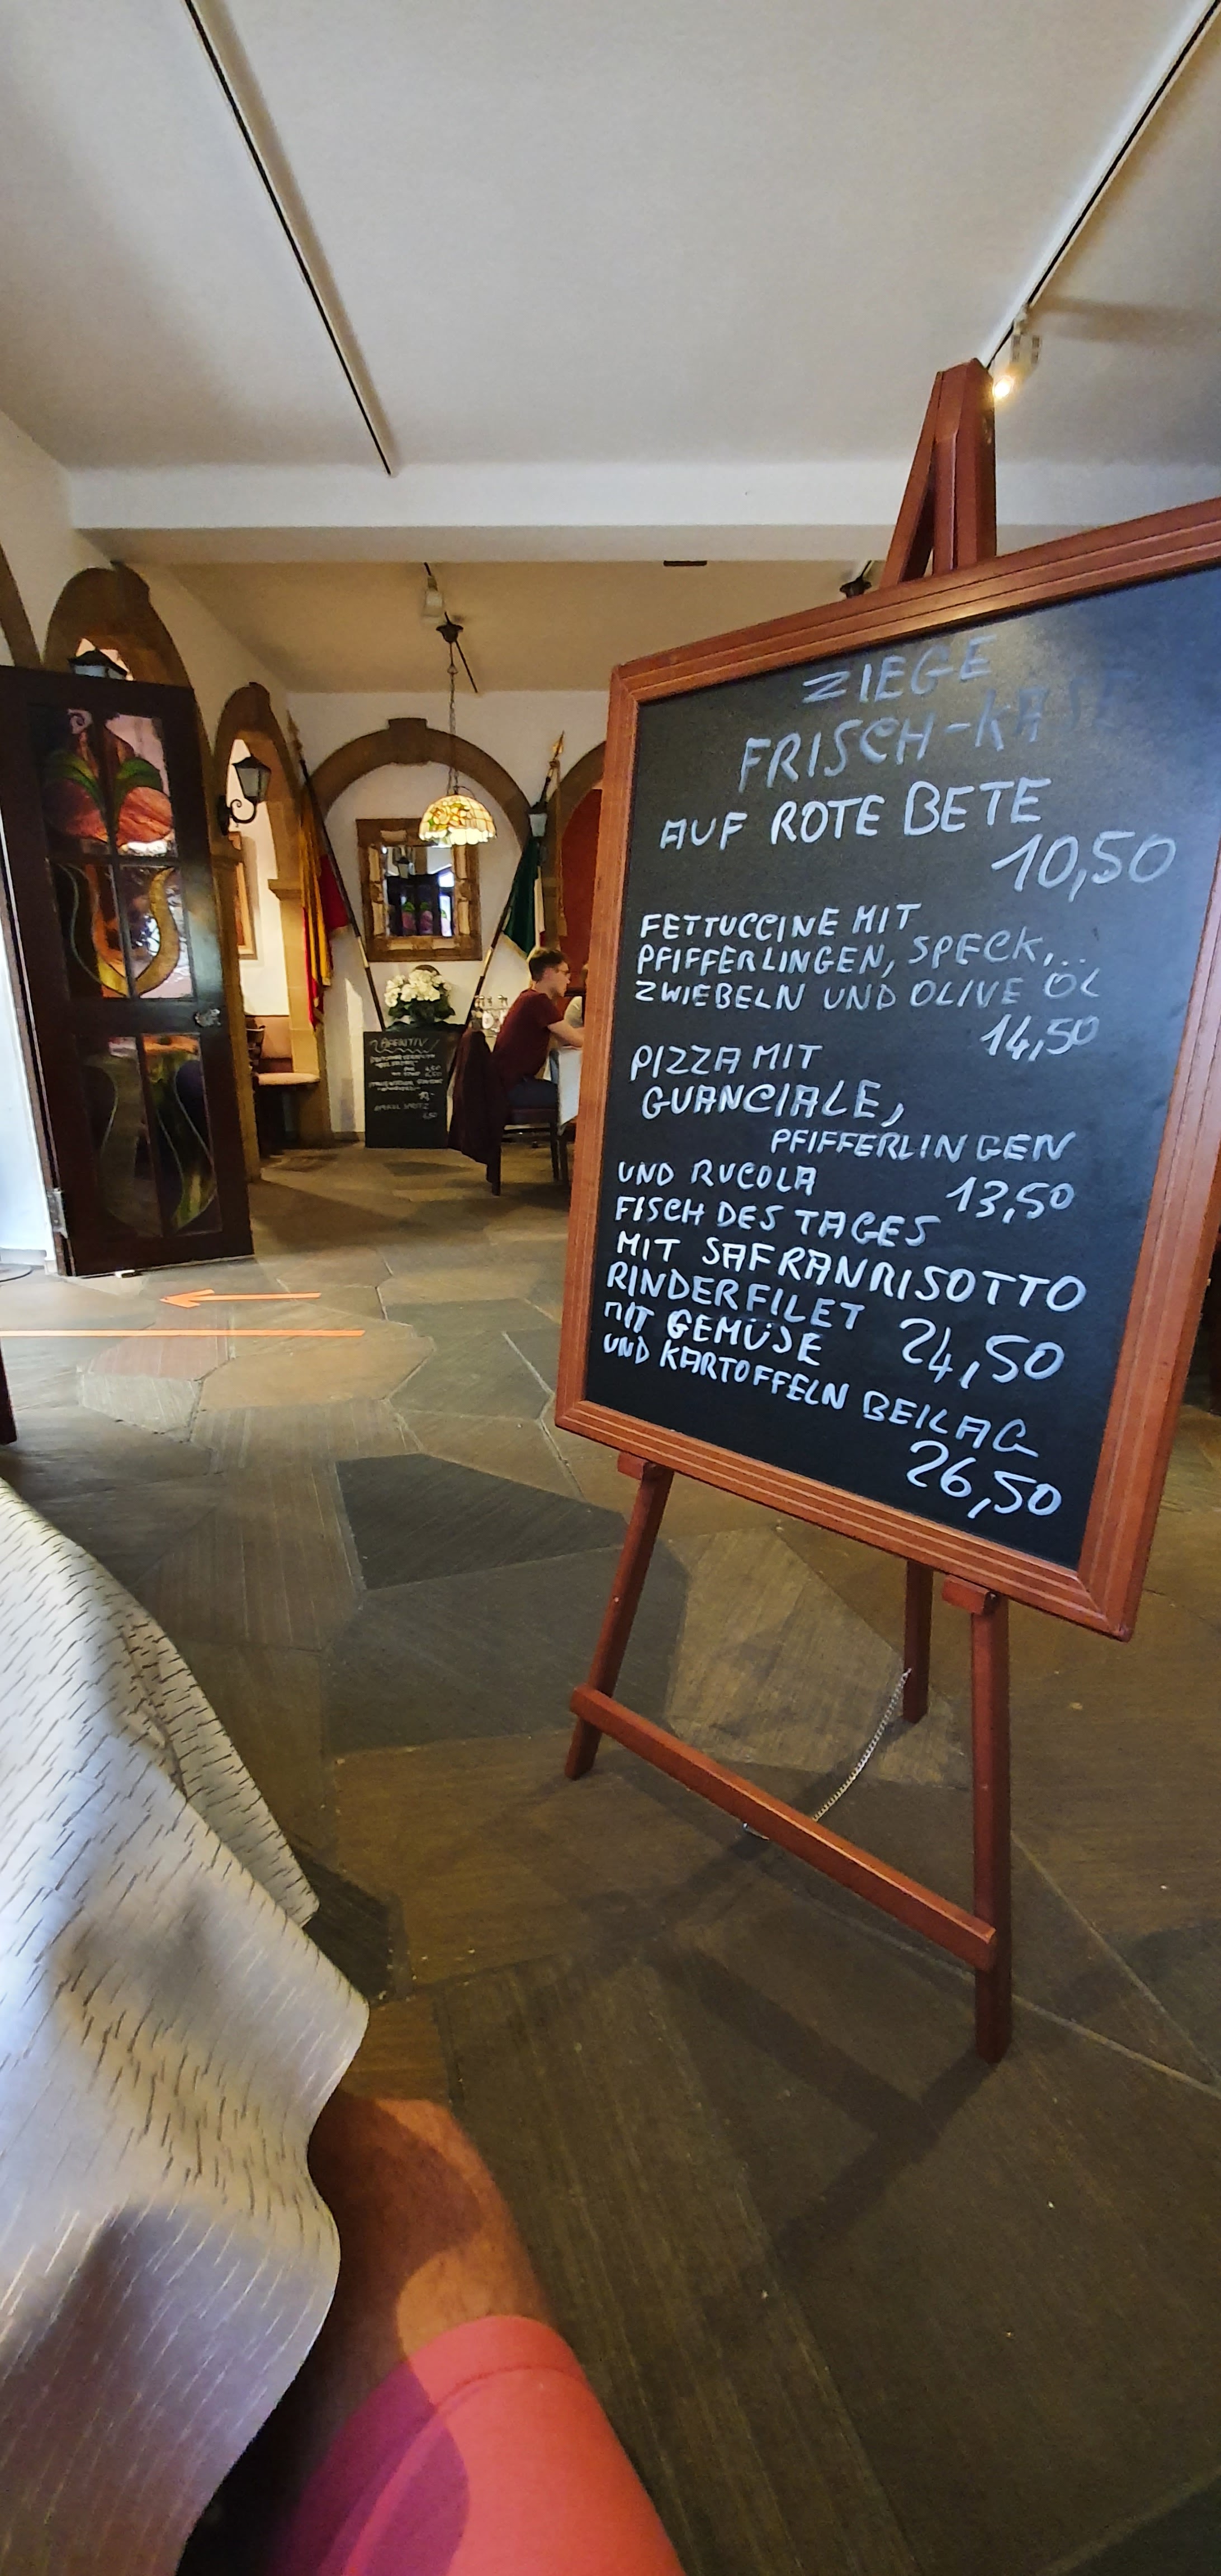 ZIEGE
FRISCH-KÄSE
AUF ROTE BETE
10,50
FETTUCCINE MIT
PFIFFERLINGEN, SPECK,..
ZWIEBELN UND OLIVE ÖL
14,50
PIZZA MIT
GUANCIALE,
PFIFFERLINGEN
UND RUCOLA 13,50
FISCH DES TAGES
MIT SAFRANRISOTTO
24,50
RINDERFILET
MIT GEMÜSE
UND KARTOFFELN BEILAG
26,50
APERITIV